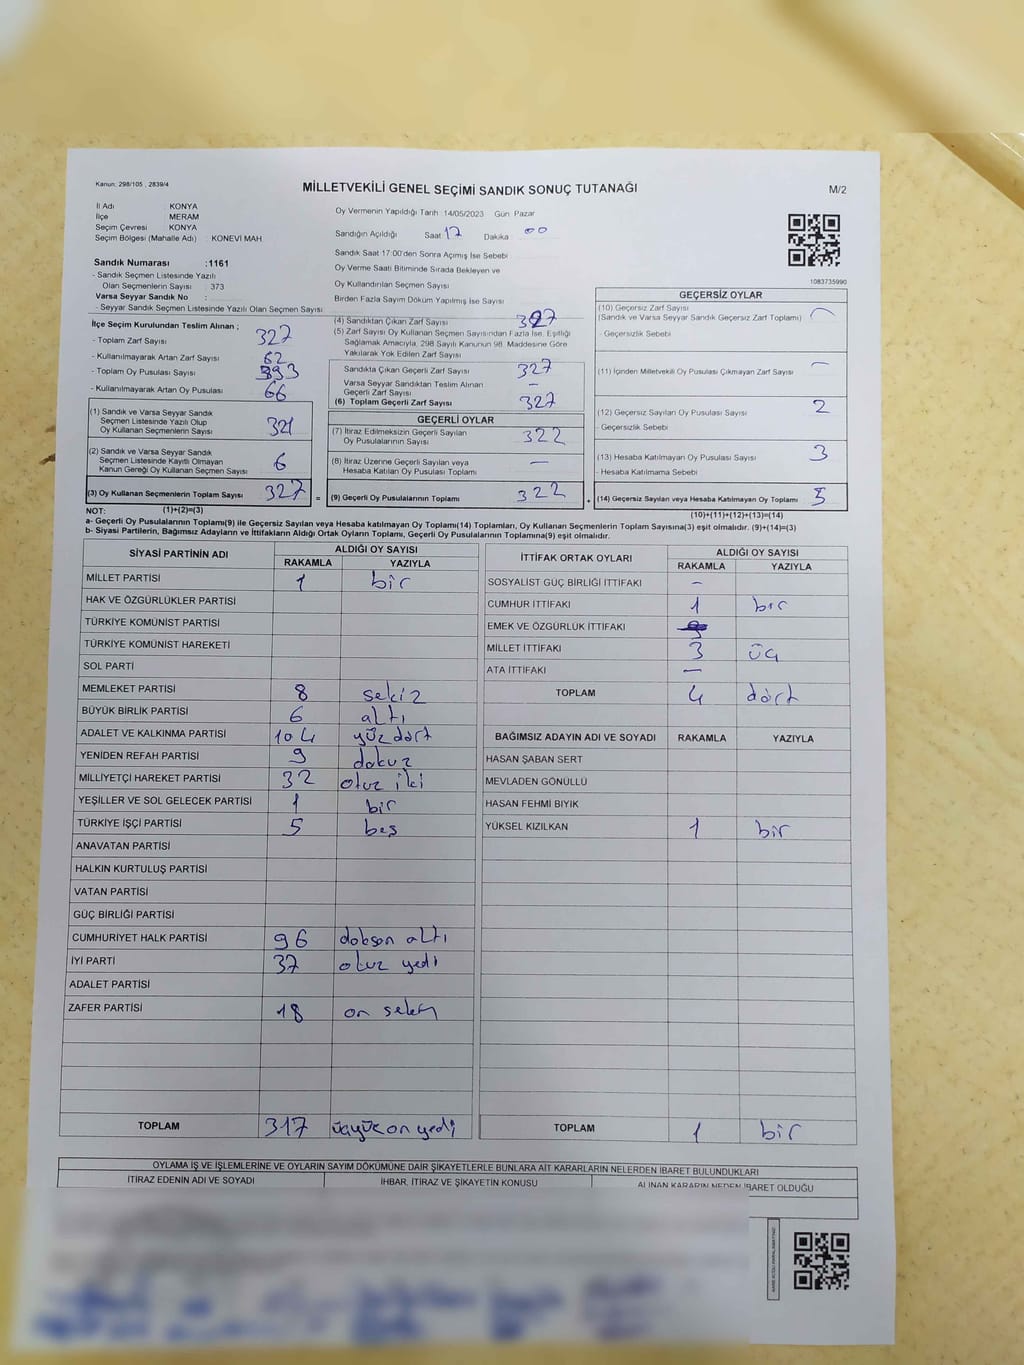 Kanun: 298/105 , 2839/4
MİLLETVEKİLİ GENEL SEÇİMİ SANDIK SONUÇ TUTANAĞI
M/2
İl Adı : KONYA
İlçe : MERAM
Seçim Çevresi : KONYA
Seçim Bölgesi (Mahalle Adı) : KONEVİ MAH.
Sandık Numarası :1161
- Sandık Seçmen Listesinde Yazılı
Olan Seçmenlerin Sayısı : 373
Varsa Seyyar Sandık No :
- Seyyar Sandık Seçmen Listesinde Yazılı Olan Seçmen Sayısı
Oy Vermenin Yapıldığı Tarih 14/05/2023 Gün Pazar
Sandığın Açıldığı Saat 17 Dakika 00
Sandık Saat 17:00'den Sonra Açımış İse Sebebi
Oy Verme Saati Bitiminde Sırada Bekleyen ve
Oy Kullandırılan Seçmen Sayısı
Birden Fazla Sayım Döküm Yapılmış İse Sayısı
1083735990
İlçe Seçim Kurulundan Teslim Alınan ;
- Toplam Zarf Sayısı 327
- Kullanılmayarak Artan Zarf Sayısı 62
- Toplam Oy Pusulası Sayısı 393
- Kullanılmayarak Artan Oy Pusulası 66
(1) Sandık ve Varsa Seyyar Sandık
Seçmen Listesinde Yazılı Olup
Oy Kullanan Seçmenlerin Sayısı 321
(2) Sandık ve Varsa Seyyar Sandık
Seçmen Listesinde Kayıtlı Olmayan
Kanun Gereği Oy Kullanan Seçmen Sayısı 6
(3) Oy Kullanan Seçmenlerin Toplam Sayısı 327 =
(4) Sandıktan Çıkan Zarf Sayısı 327
(5) Zarf Sayısı Oy Kullanan Seçmen Sayısından Fazla İse, Eşitliği
Sağlamak Amacıyla, 298 Sayılı Kanunun 98. Maddesine Göre
Yakılarak Yok Edilen Zarf Sayısı
Sandıkta Çıkan Geçerli Zarf Sayısı 327
Varsa Seyyar Sandıktan Teslim Alınan
Geçerli Zarf Sayısı –
(6) Toplam Geçerli Zarf Sayısı 327
GEÇERLİ OYLAR
(7) İtiraz Edilmeksizin Geçerli Sayılan
Oy Pusulalarının Sayısı 322
(8) İtiraz Üzerine Geçerli Sayılan veya
Hesaba Katılan Oy Pusulası Toplamı –
(9) Geçerli Oy Pusulalarının Toplamı 322 +
GEÇERSİZ OYLAR
(10) Geçersiz Zarf Sayısı
(Sandık ve Varsa Seyyar Sandık Geçersiz Zarf Toplamı) –
- Geçersizlik Sebebi
(11) İçinden Milletvekili Oy Pusulası Çıkmayan Zarf Sayısı –
(12) Geçersiz Sayılan Oy Pusulası Sayısı 2
- Geçersizlik Sebebi
(13) Hesaba Katılmayan Oy Pusulası Sayısı 3
- Hesaba Katılmama Sebebi
(14) Geçersiz Sayılan veya Hesaba Katılmayan Oy Toplamı 5
NOT: (1)+(2)=(3)
(10)+(11)+(12)+(13)=(14)
a- Geçerli Oy Pusulalarının Toplamı(9) ile Geçersiz Sayılan veya Hesaba katılmayan Oy Toplamı(14) Toplamları, Oy Kullanan Seçmenlerin Toplam Sayısına(3) eşit olmalıdır. (9)+(14)=(3)
b- Siyasi Partilerin, Bağımsız Adayların ve İttifakların Aldığı Ortak Oyların Toplamı, Geçerli Oy Pusulalarının Toplamına(9) eşit olmalıdır.
SİYASİ PARTİNİN ADI ALDIĞI OY SAYISI
RAKAMLA YAZIYLA
MİLLET PARTİSİ 1 bir
HAK VE ÖZGÜRLÜKLER PARTİSİ
TÜRKİYE KOMÜNİST PARTİSİ
TÜRKİYE KOMÜNİST HAREKETİ
SOL PARTİ
MEMLEKET PARTİSİ 8 sekiz
BÜYÜK BİRLİK PARTİSİ 6 altı
ADALET VE KALKINMA PARTİSİ 104 yüz dört
YENİDEN REFAH PARTİSİ 9 dokuz
MİLLİYETÇİ HAREKET PARTİSİ 32 otuz iki
YEŞİLLER VE SOL GELECEK PARTİSİ 1 bir
TÜRKİYE İŞÇİ PARTİSİ 5 beş
ANAVATAN PARTİSİ
HALKIN KURTULUŞ PARTİSİ
VATAN PARTİSİ
GÜÇ BİRLİĞİ PARTİSİ
CUMHURİYET HALK PARTİSİ 96 doksan altı
İYİ PARTİ 37 otuz yedi
ADALET PARTİSİ
ZAFER PARTİSİ 18 on sekiz
TOPLAM 317 üçyüz on yedi
İTTİFAK ORTAK OYLARI ALDIĞI OY SAYISI
RAKAMLA YAZIYLA
SOSYALİST GÜÇ BİRLİĞİ İTTİFAKI –
CUMHUR İTTİFAKI 1 bir
EMEK VE ÖZGÜRLÜK İTTİFAKI
MİLLET İTTİFAKI 3 üç
ATA İTTİFAKI –
TOPLAM 4 dört
BAĞIMSIZ ADAYIN ADI VE SOYADI RAKAMLA YAZIYLA
HASAN ŞABAN SERT
MEVLADEN GÖNÜLLÜ
HASAN FEHMİ BIYIK
YÜKSEL KIZILKAN 1 bir
TOPLAM 1 bir
OYLAMA İŞ VE İŞLEMLERİNE VE OYLARIN SAYIM DÖKÜMÜNE DAİR ŞİKAYETLERLE BUNLARA AİT KARARLARIN NELERDEN İBARET BULUNDUKLARI
İTİRAZ EDENİN ADI VE SOYADI İHBAR, İTİRAZ VE ŞİKAYETİN KONUSU ALINAN KARARIN NEDEN İBARET OLDUĞU